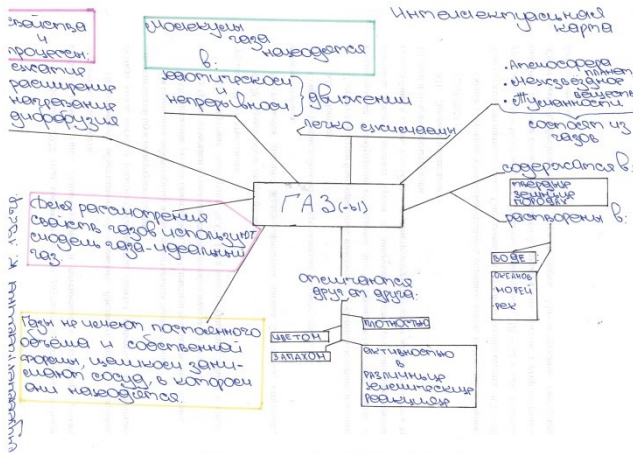 Интеллектуальная
карта
свойства
и
процессы:
сжатие
расширение
нагревание
диффузия
Молекулы
газа
находятся
в:
хаотическом
и
непрерывном
движении
легко сжимаемы
• Атмосфера
планет
• Межзвездное
вещество
• Туманности
состоят из
газов
ГАЗ(-ы)
содержатся в:
твердых
земных
породах
растворены в:
воде
океанов
морей
рек
Для рассмотрения
свойств газов используют
модель газа-идеальный
газ.
Газы не имеют постоянного
объёма и собственной
формы, целиком зани-
мают сосуд, в котором
они находятся.
отличаются
друг от друга:
цветом
запахом
плотностью
активностью
в
различных
химических
реакциях